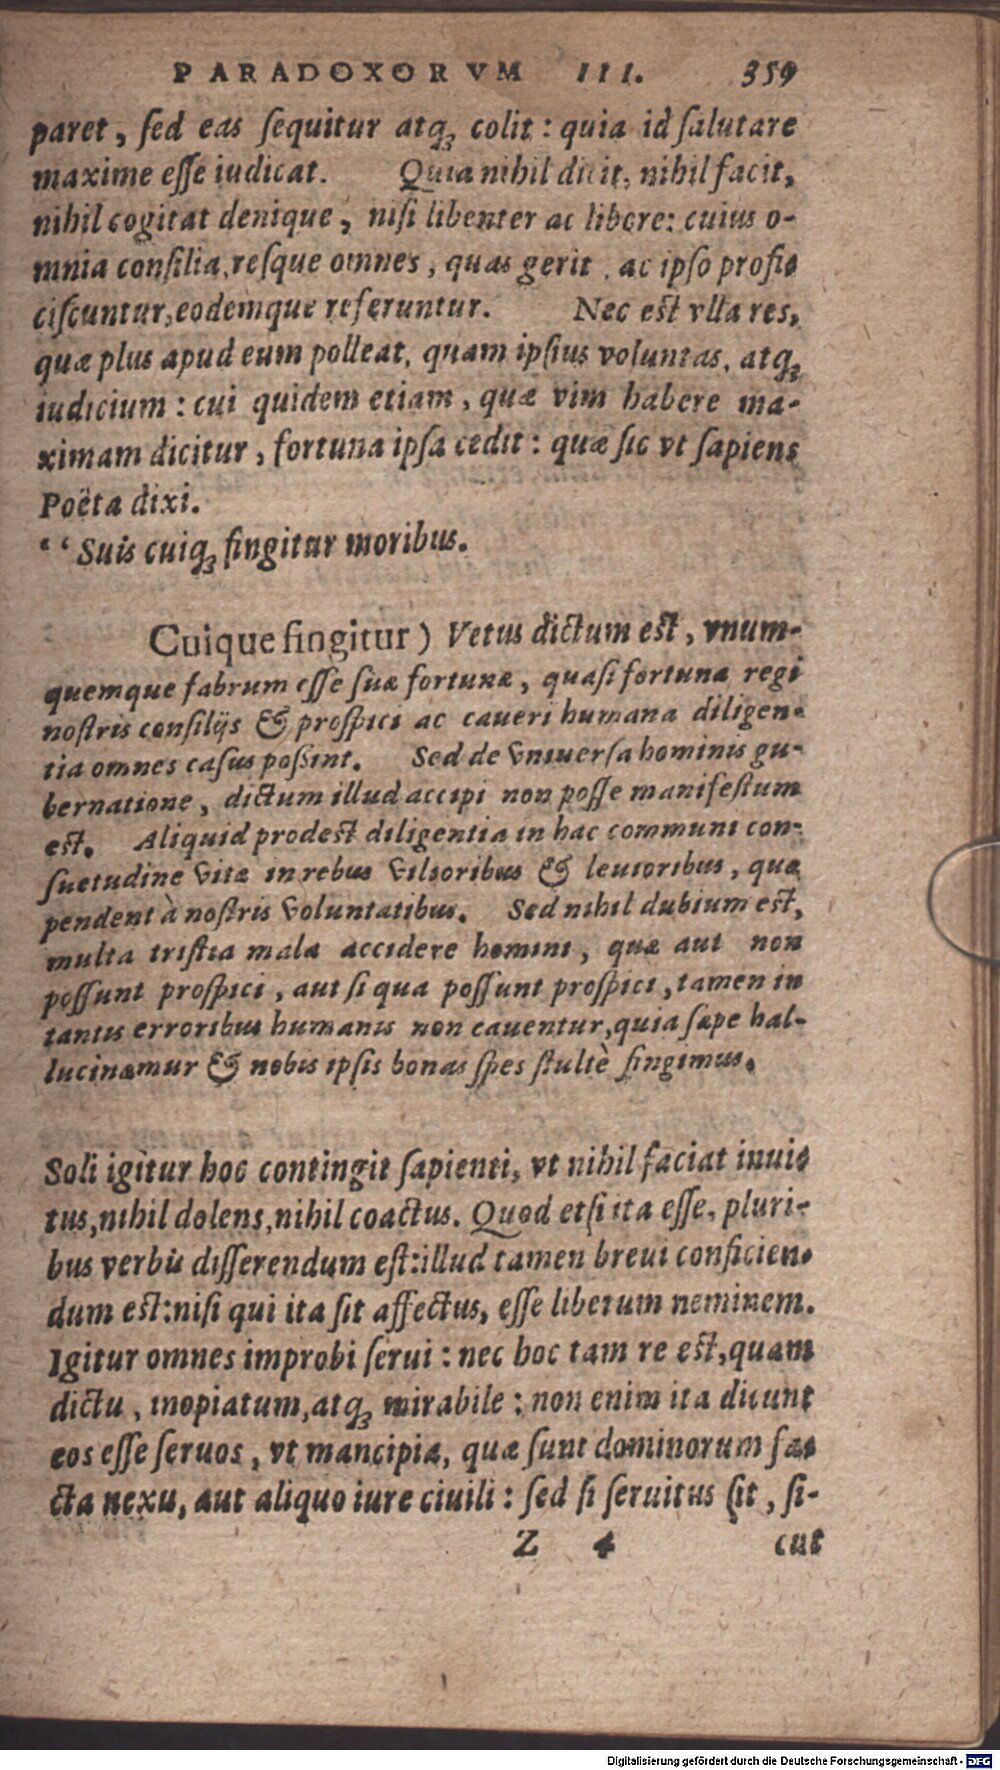 PARADOXORVM III. 359
paret, ſed eas ſequitur atqꝫ colit: quia id ſalutare
maxime eſſe iudicat. Quia nihil dicit, nihil facit,
nihil cogitat denique, niſi libenter ac libere: cuius o-
mnia conſilia, reſque omnes, quas gerit, ac ipſo profi-
ciſcuntur, eodemque referuntur. Nec eſt vlla res,
quæ plus apud eum polleat, quam ipſius voluntas, atqꝫ
iudicium: cui quidem etiam, quæ vim habere ma-
ximam dicitur, fortuna ipſa cedit: quæ ſic vt ſapiens
Poëta dixi.
“Suis cuiqꝫ fingitur moribus.
Cuique fingitur) Vetus dictum eſt, vnum-
quemque fabrum eſſe ſuæ fortunæ, quaſi fortuna regi
noſtris conſilijs & proſpici ac caueri humana diligen-
tia omnes caſus poſsint. Sed de vniuerſa hominis gu-
bernatione, dictum illud accipi non poſſe manifeſtum
eſt. Aliquid prodeſt diligentia in hac communi con-
ſuetudine vitæ in rebus vilioribus & leuioribus, quæ
pendent à noſtris voluntatibus. Sed nihil dubium eſt,
multa triſtia mala accidere homini, quæ aut non
poſſunt proſpici, aut ſi qua poſſunt proſpici, tamen in
tantis erroribus humanis non cauentur, quia ſæpe hal-
lucinamur & nobis ipſis bonas ſpes ſtultè fingimus.
Soli igitur hoc contingit ſapienti, vt nihil faciat inui-
tus, nihil dolens, nihil coactus. Quod etſi ita eſſe, pluri-
bus verbis diſſerendum eſt: illud tamen breui conficien-
dum eſt: niſi qui ita ſit affectus, eſſe liberum neminem.
Igitur omnes improbi ſerui: nec hoc tam re eſt, quam
dictu, inopiatum, atqꝫ mirabile: non enim ita dicunt
eos eſſe ſeruos, vt mancipia, quæ ſunt dominorum fa-
cta nexu, aut aliquo iure ciuili: ſed ſi ſeruitus ſit, ſi-
Z 4 cut
Digitalisierung gefördert durch die Deutsche Forschungsgemeinschaft - DFG